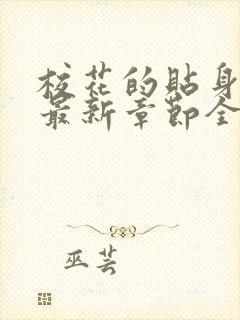 校花的贴身
最新章节全
巫芸